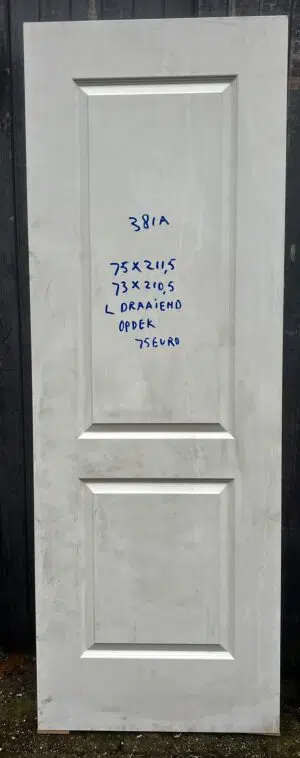 381A
75X211,5
73X210,5
L DRAAIEND
OPDEK
75EURO